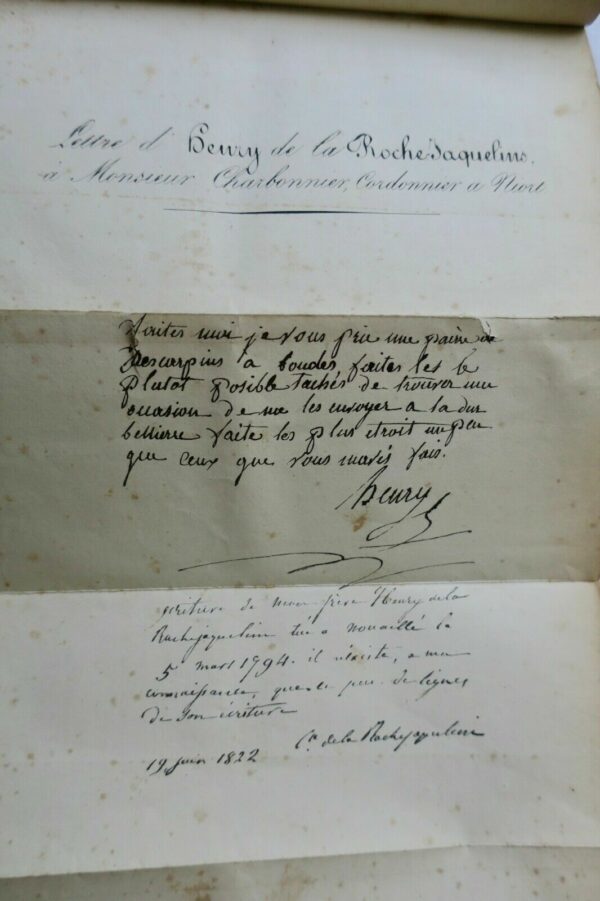 Lettre d' Henry de la RocheJaquelins,
à Monsieur Charbonnier, Cordonnier a Niort
faites moi je vous prie une paire de
Descarpins à boucles, faites les le
plutot posible tachés de trouver une
ocasion de me les envoyer a la dur
bellierre faite les plus etroit un peu
que ceux que vous mavés fais.
henry
ecriture de mon frère Henry de la
Rochejaquelin tué a nouaillé le
5 mars 1794. il n'existe, a ma
connaissance, que ce peu de lignes
de son écriture
de la Rochejaquelein
19 juin 1822